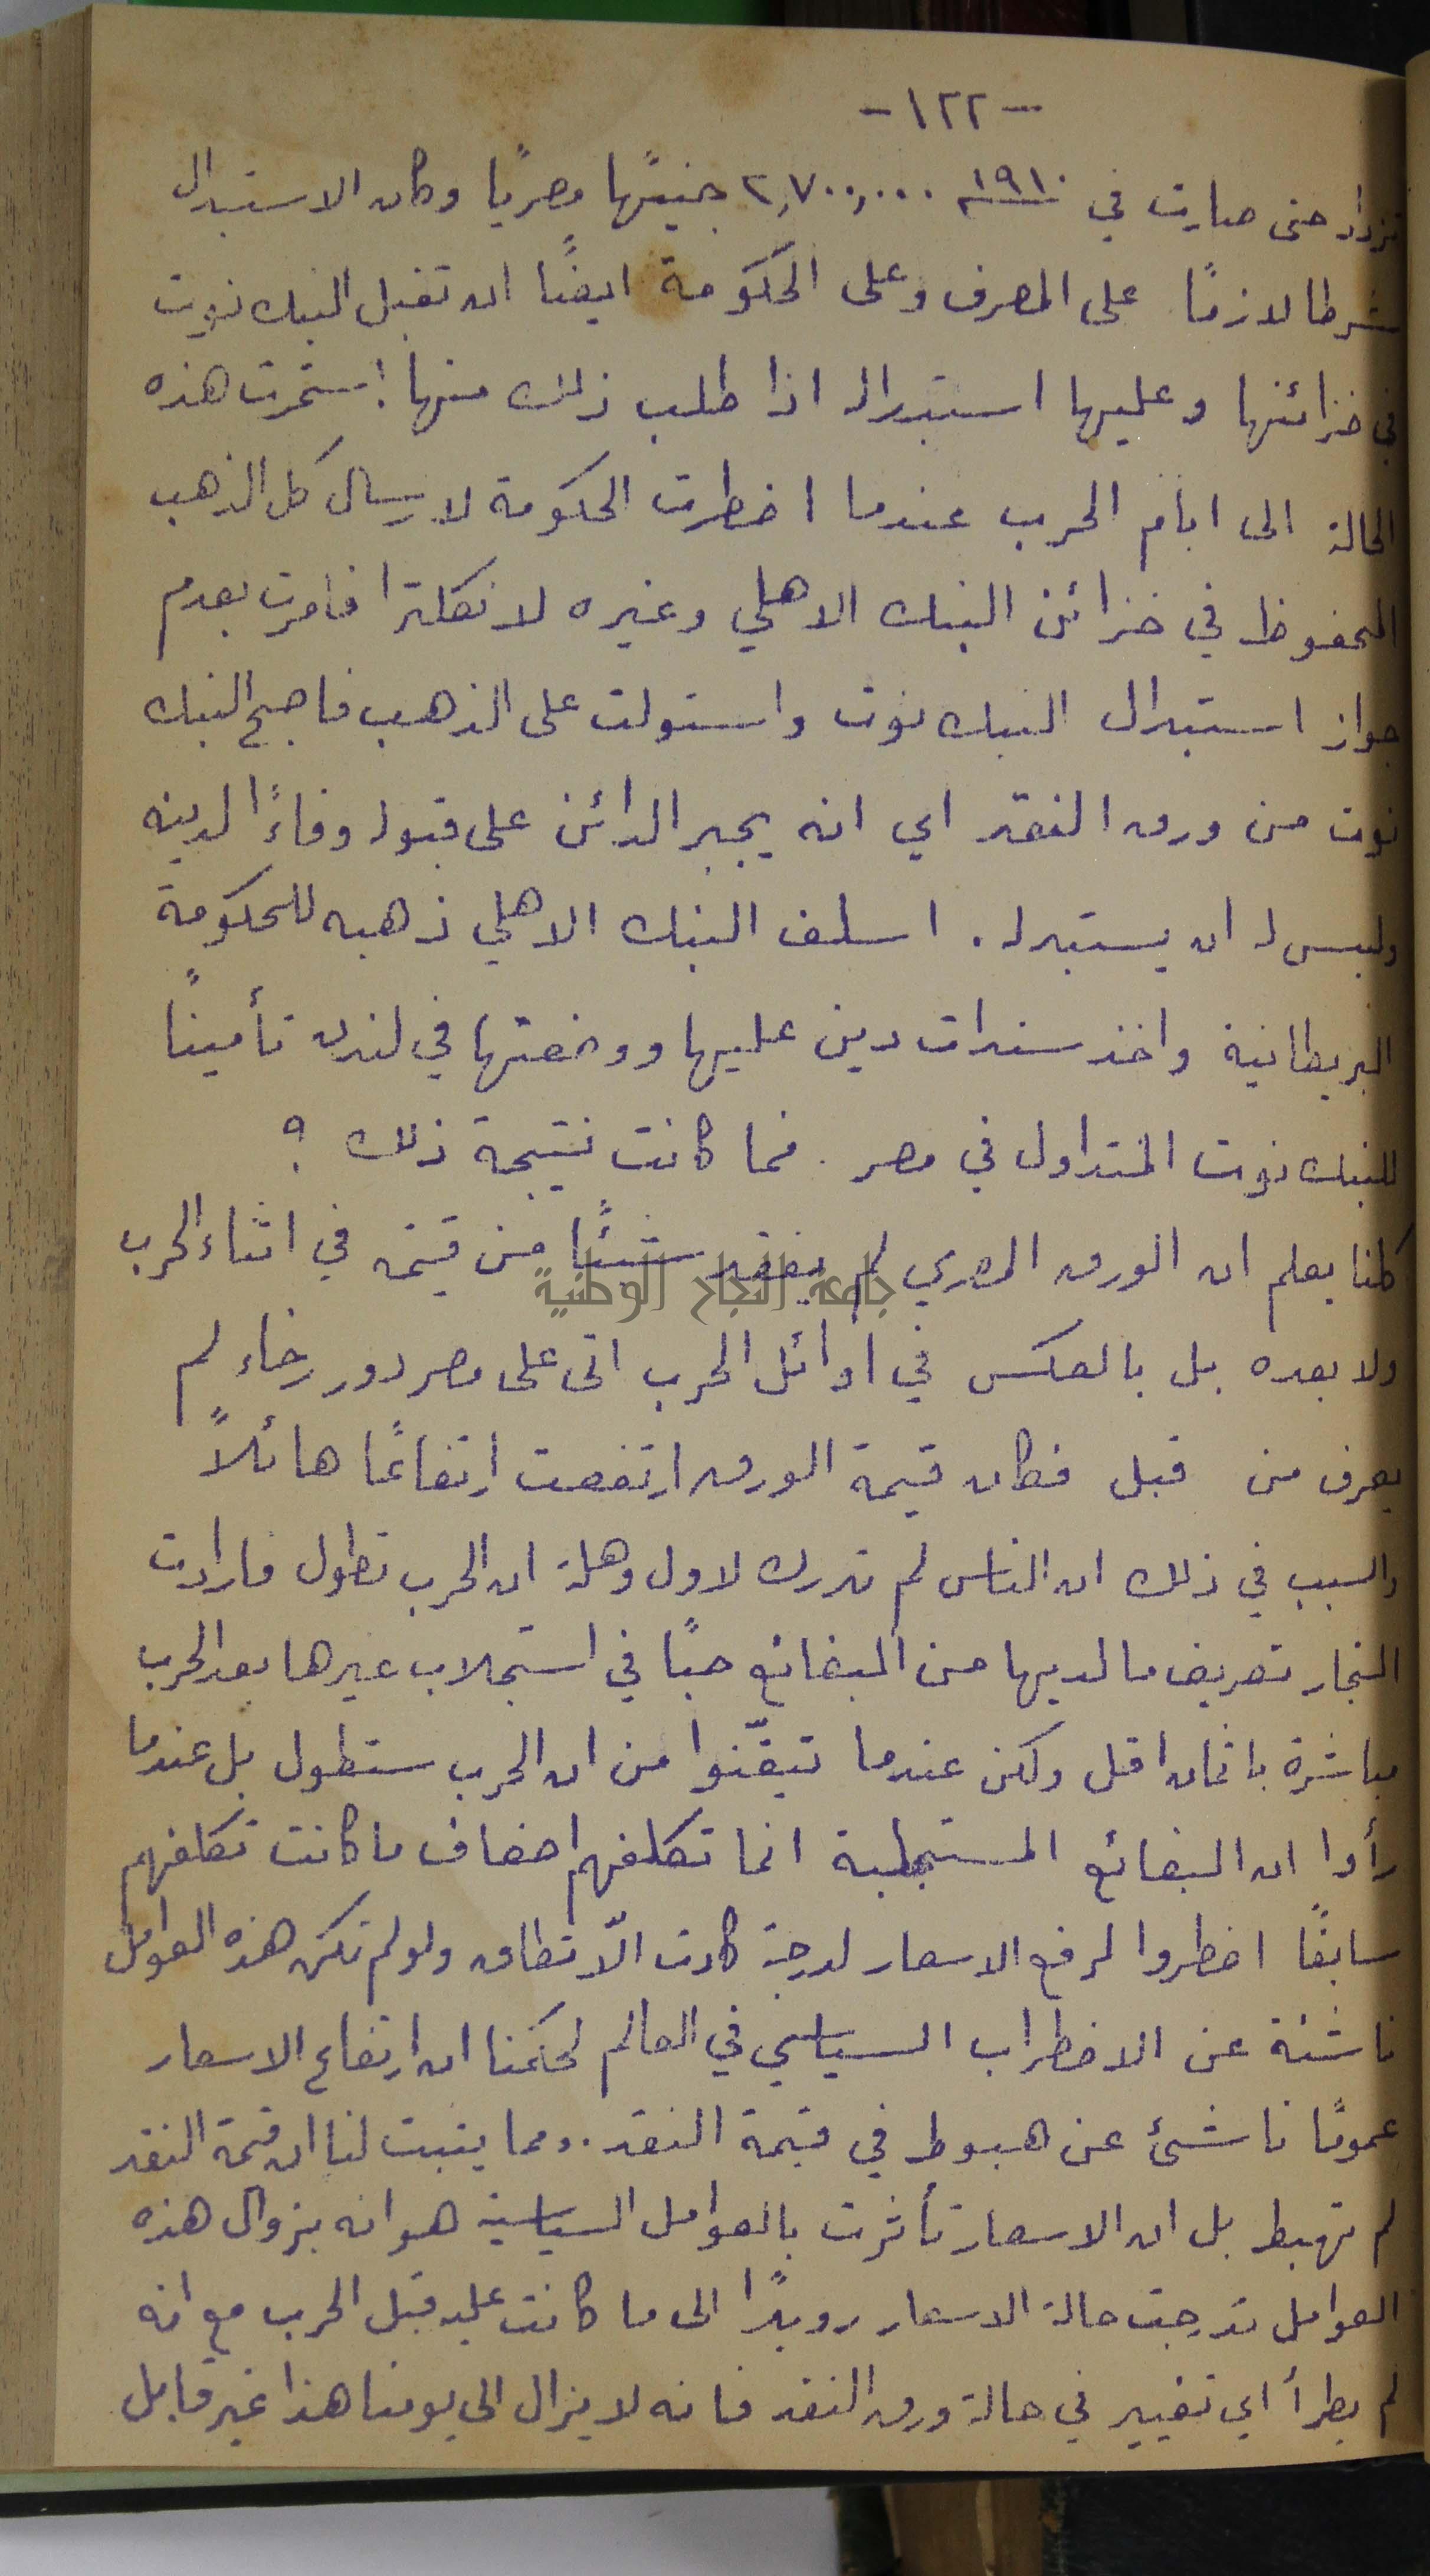 -١٢٢-
تزداد حتى صارت في ١٩١٠ ٢,٧٠٠,٠٠٠ جنيهًا مصريًا وكان الاستبدال
شرطا لازمًا على المصرف وعلى الحكومة ايضًا ان تقبل البنك نوت
في خزائنها وعليها استبداله اذا طلب ذلك منها. استمرت هذه
الحالة الى ايام الحرب عندما اضطرت الحكومة لارسال كل الذهب
المحفوظ في خزائن البنك الاهلي وغيره لانكلترا فامرت بعدم
جواز استبدال البنك نوت واستولت على الذهب فاصبح البنك
نوت من ورق النقد اي انه يجبر الدائن على قبوله وفاءً الدينه
وليس له ان يستبدله. اسلف البنك الاهلي ذهبه للحكومة
البريطانية واخذ سندات دين عليها ووضعتها في لندن تأمينًا
للبنك نوت المتداول في مصر. فما كانت نتيجة ذلك ؟
كلنا يعلم ان الورق المصري لم يفقد شيئًا من قيمته في اثناء الحرب
جامعة النجاح الوطنية
ولا بعده بل بالعكس في أوائل الحرب اتى على مصر دور رخاء لم
يعرف من قبل فكان قيمة الورق ارتفعت ارتفاعًا هائلاً
والسبب في ذلك ان الناس لم تدرك لاول وهلة ان الحرب تطول فارادت
التجار تصريف ما لديها من البضائع حبًا في استجلاب غيرها بعد الحرب
مباشرة باثمان اقل ولكن عندما تيقّنوا من ان الحرب ستطول بل عندما
رأوا ان البضائع المستجلبة انما تكلفهم اضعاف ما كانت تكلفهم
سابقًا اضطروا لرفع الاسعار لدرجة كادت الّا تطاق ولو لم تكن هذه العوامل
ناشئة عن الاضطراب السياسي في العالم لحكمنا ان ارتفاع الاسعار
عمومًا ناشئ عن هبوط في قيمة النقد. ومما يثبت لنا ان قيمة النقد
لم تهبط بل ان الاسعار تأثرت بالعوامل السياسية هو انه بزوال هذه
العوامل تدرجت حالة الاسعار رويدًا الى ما كانت عليه قبل الحرب مع انه
لم يطرأ اي تغيير في حالة ورق النقد فانه لا يزال الى يومنا هذا غير قابل